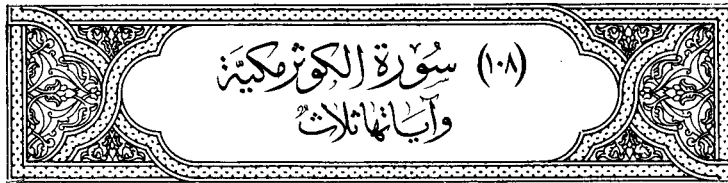 (١٠٨) سُورَة الكوثر مكيَّة
وَآيَاتها ثلاثٌ